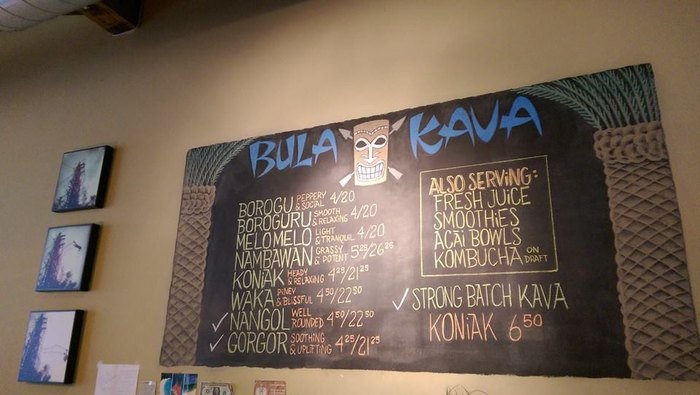 BULA KAVA
BOROGU PEPPERY & SOCIAL 4/20
BOROGURU SMOOTH & RELAXING 4/20
MELOMELO LIGHT & TRANQUIL 4/20
NAMBAWAN GRASSY & POTENT 5²⁵/26²⁵
KONIAK HEADY & RELAXING 4²⁵/21²⁵
WAKA PINEY & BLISSFUL 4⁵⁰/22⁵⁰
✓ NANGOL WELL ROUNDED 4⁵⁰/22⁵⁰
✓ GORGOR SOOTHING & UPLIFTING 4²⁵/21²⁵
ALSO SERVING:
FRESH JUICE
SMOOTHIES
AÇAI BOWLS
KOMBUCHA ON DRAFT
✓ STRONG BATCH KAVA
KONIAK 6⁵⁰